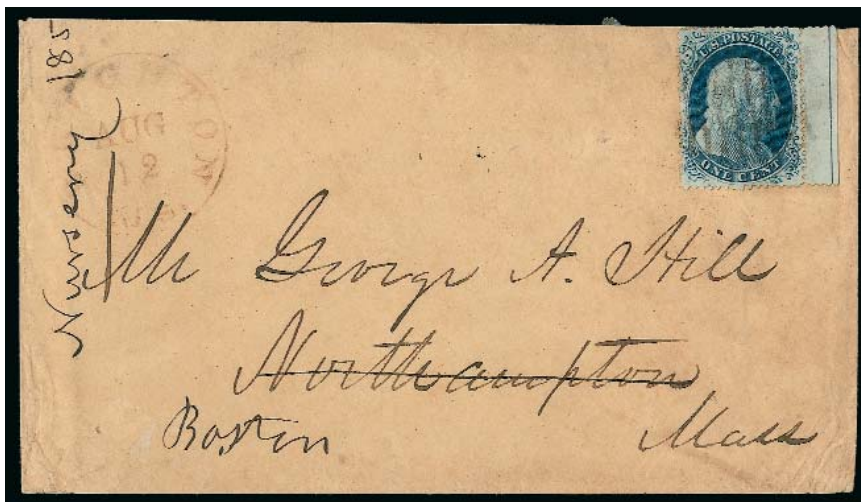 Nursery 185
AUG
12
U.S. POSTAGE
ONE CENT
Mr George A. Hill
Northampton
Boston Mass